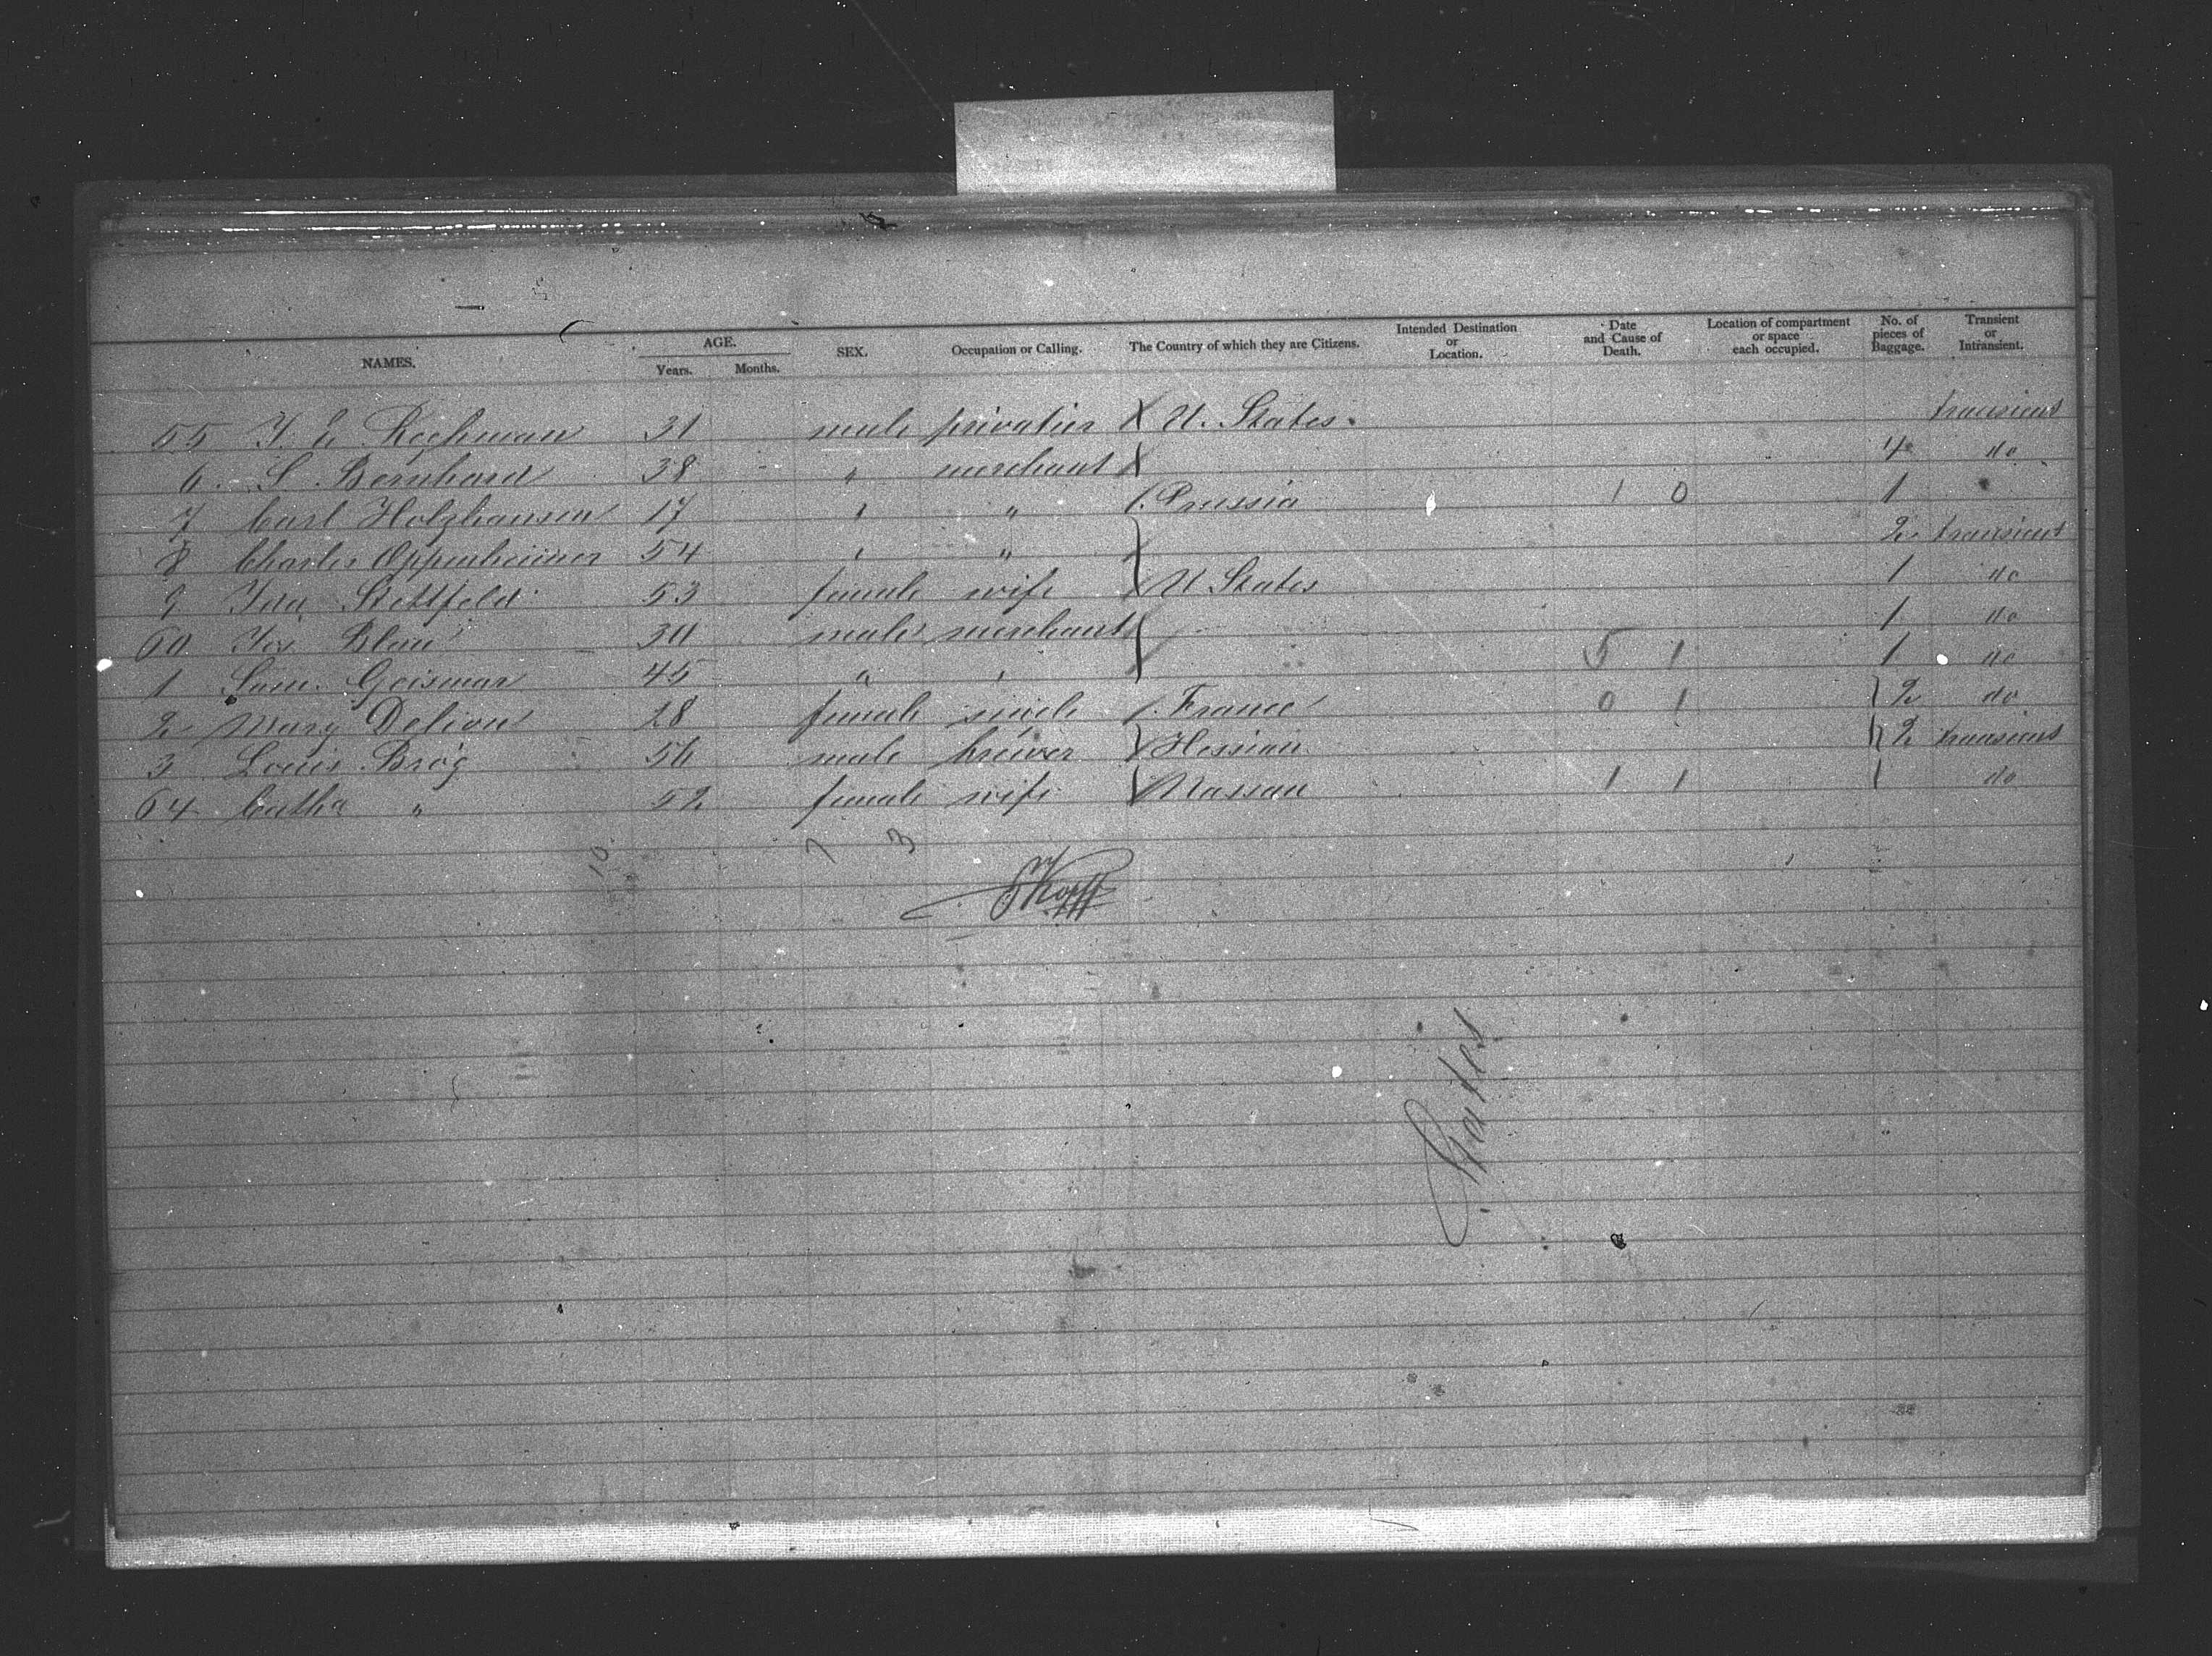 NAMES. AGE. Years. Months. SEX. Occupation or Calling. The Country of which they are Citizens. Intended Destination or Location. Date and Cause of Death. Location of compartment or space each occupied. No. of pieces of Baggage. Transient or Intransient.
55 31 male privatier X U. States. transient
6. S. Bernhard 38 " merchant X 4 do
7 Carl Holzhausen 17 " " Prussia 1 0 1 "
8 Charles Oppenheimer 54 " " 2 transient
9 Ida Stettfeld 53 female wife U States 1 do
60 Jos. Blau 30 male merchant 1 do
1 Sam. Geismar 45 " " 5 1 1 do
2 Mary Delion 28 female single France 0 1 2 do
3 Louis Brög 56 male brewer Hessian 2 transient
64 Catha " 52 female wife Nassau 1 1 1 do
10 7 3
Kopff
States